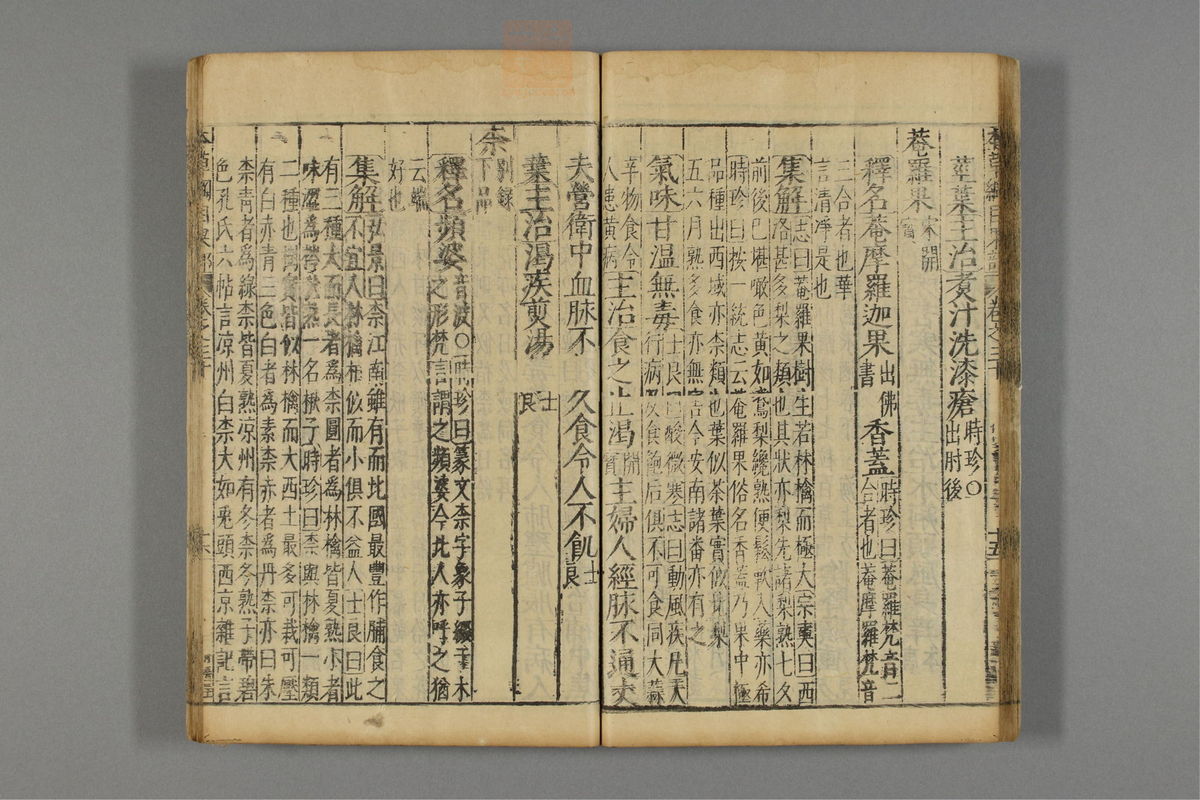 莖葉主治煮汁洗漆瘡時珍○出肘後
菴羅果宋開寶
釋名菴摩羅迦果出佛書香蓋時珍曰菴羅梵音二合者也菴摩羅梵音
三合者也華言清淨是也
集解志曰菴羅果樹生若林檎而極大宗奭曰西洛甚多梨之類也其狀亦梨先諸梨熟七夕
前後已堪噉色黃如鵞梨纔熟便鬆軟入藥亦希
時珍曰按一統志云菴羅果俗名香蓋乃果中極
品種出西域亦柰類也葉似茶葉實似北梨
五六月熟多食亦無害今安南諸番亦有之
氣味甘溫無毒士良曰酸微寒志曰動風疾凡天行病及食飽后俱不可食同大蒜
辛物食令人患黃病主治食之止渴開寶主婦人經脉不通丈
夫營衛中血脉不久食令人不飢士良
葉主治渴疾煎湯士良
柰別錄下品
釋名頻婆音波○時珍曰篆文柰字象子綴于木之形梵言謂之頻婆今北人亦呼之猶
云端好也
集解弘景曰柰江南雖有而北國最豐作脯食之不宜人林檎相似而小俱不益人士良曰此
有三種大而長者爲柰圓者爲林檎皆夏熟小者味澀爲梣秋熟一名楸子時珍曰柰與林檎一類
二種也樹實皆似林檎而大西土最多可栽可壓
有白赤青三色白者爲素柰赤者爲丹柰亦曰朱
柰青者爲綠柰皆夏熟凉州有冬柰冬熟子帶碧
色孔氏六帖言凉州白柰大如兎頭西京雜記言